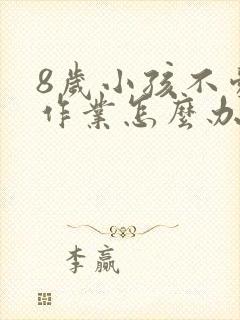 8歲小孩不
作業怎麼办
李贏